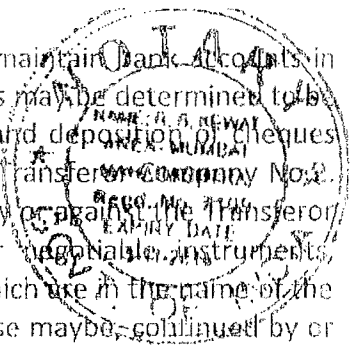 maintain Bank Accounts in
s may be determined to be
and deposition of cheques
ransferor Company No.2.
y or against the Transferor
r negotiable instruments,
ich are in the name of the
se maybe, continued by or
NOTARY
NAME: R. R.
AREA: MUMBAI
REGD. NO.
EXPIRY DATE
OF